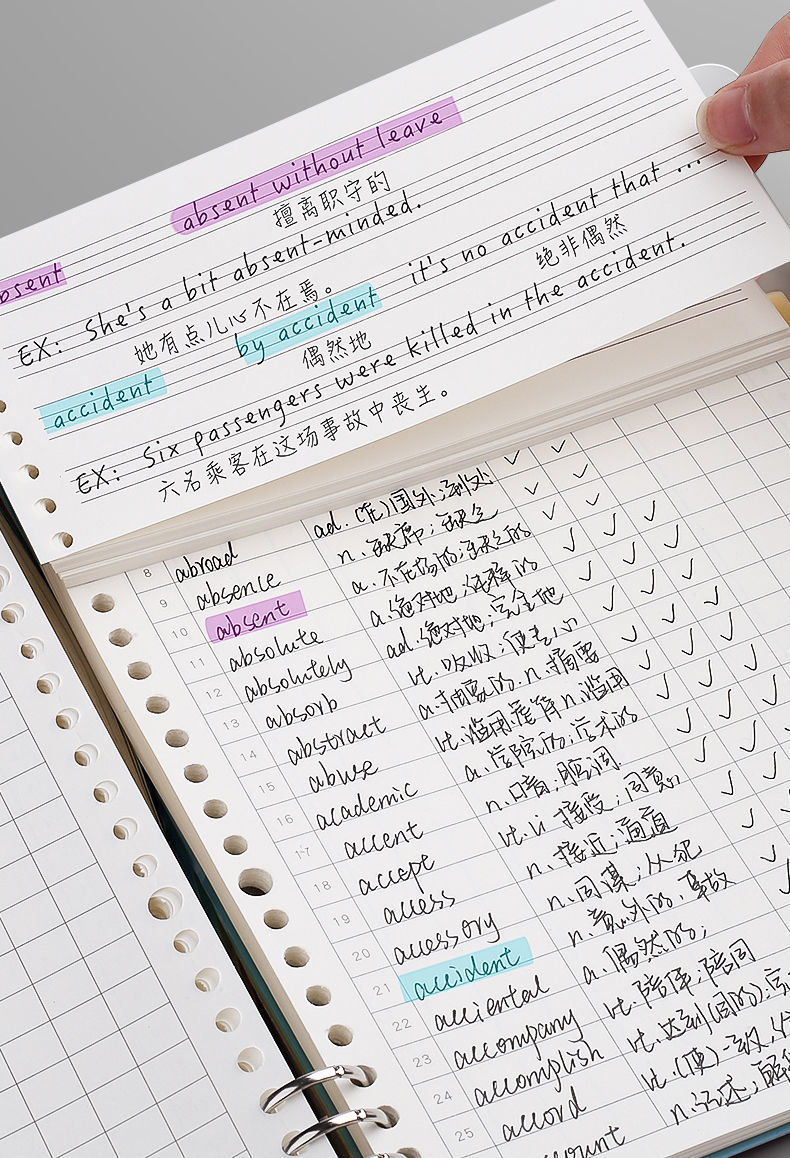 absent without leave
擅离职守的
bsent
EX: She's a bit absent-minded.
她有点儿心不在焉。
by accident
偶然地
it's no accident that ...
绝非偶然
accident
EX: Six passengers were killed in the accident.
六名乘客在这场事故中丧生。
8 abroad ad.(在)国外;到处 ✓ ✓
9 absence n.缺席;缺乏 ✓ ✓
10 absent a.不在场的;缺乏的 ✓ ✓
11 absolute a.绝对地; ✓ ✓ ✓
12 absolutely ad.绝对地;完全地 ✓ ✓ ✓
13 absorb vt.吸收;使专心 ✓ ✓ ✓
14 abstract a.抽象的 n.摘要 ✓ ✓ ✓
15 abuse vt.滥用;虐待 n.滥用 ✓ ✓ ✓
16 academic a.学院的;学术的 ✓ ✓ ✓
17 accent n.口音;腔调 ✓ ✓ ✓
18 accept vt.vi 接受;同意 ✓ ✓ ✓
19 access n.接近;通道 ✓ ✓
20 accessory n.同谋;从犯 ✓
21 accident n.意外的,事故 ✓
22 acciental a.偶然的; ✓
23 accompany vt.陪伴;陪同
24 accomplish vt.达到(目的);
25 accord vt.(使)一致;
account n.记述;解